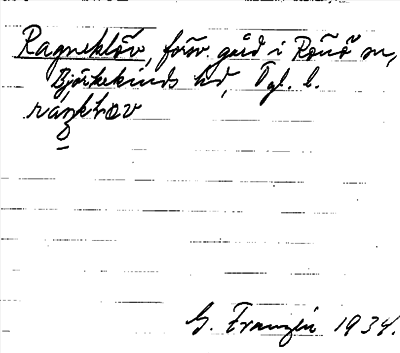 Ragneklöv, förv. gård i Rönö sn,
Björkekinds hd, Ögl. l.
ránkļəv
G. Franzén 1934.